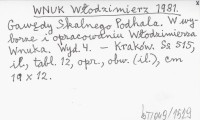 WNUK Włodzimierz 1981.
Gawędy Skalnego Podhala. W wy-
borze i opracowaniu Włodzimierza
Wnuka. Wyd. 4. - Kraków. Ss 515,
il., tabl. 12, opr., obw. (il.), cm
19 x 12.